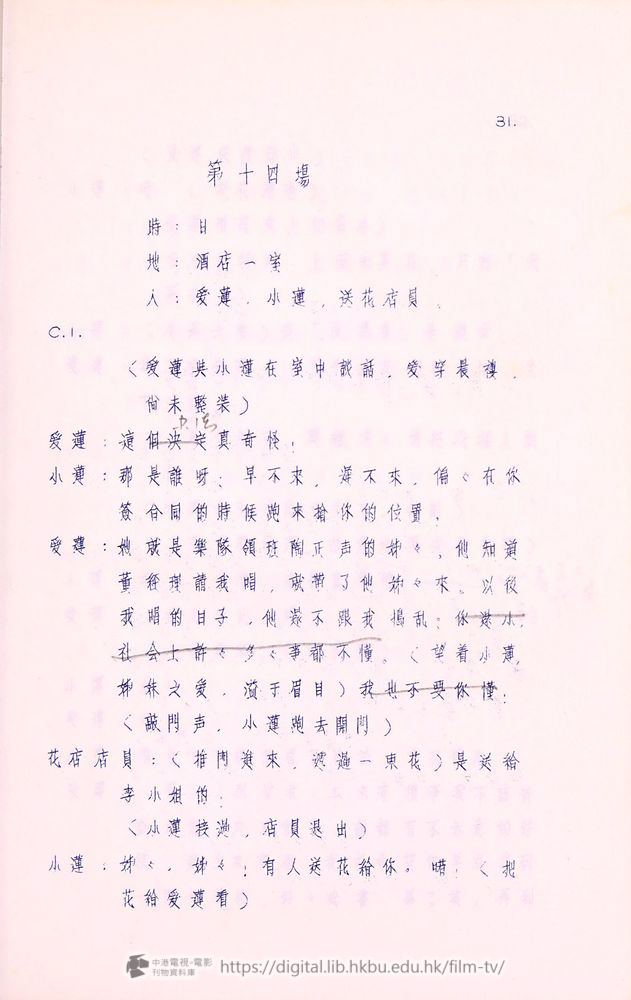 31.
第十四場
時：日
地：酒店一室
人：愛蓮．小蓮．送花店員．
C.1.
（愛蓮與小蓮在室中談話．愛穿晨褸．
尚未整装）
愛蓮：這個決定真奇怪！
小蓮：那是誰呀；早不來，遲不來，偏々在你
簽合同的時候跑來搶你的位置．
愛蓮：她就是樂隊領班陶正声的姊々，他知道
董經理請我唱，就帶了他姊々來。以後
我唱的日子，他還不跟我搗乱；你還小．
社会上許々多々事都不懂。（望着小蓮，
姊妹之愛．溢于眉目）我也不要你懂；
（敲門声．小蓮跑去開門）
花店店員：（推門進來，遞過一束花）是送給
李小姐的；
（小蓮接過，店員退出）
小蓮：姊々．姊々；有人送花給你。喏！（把
花給愛蓮看）
中港電視·電影
刊物資料庫
https://digital.lib.hkbu.edu.hk/film-tv/